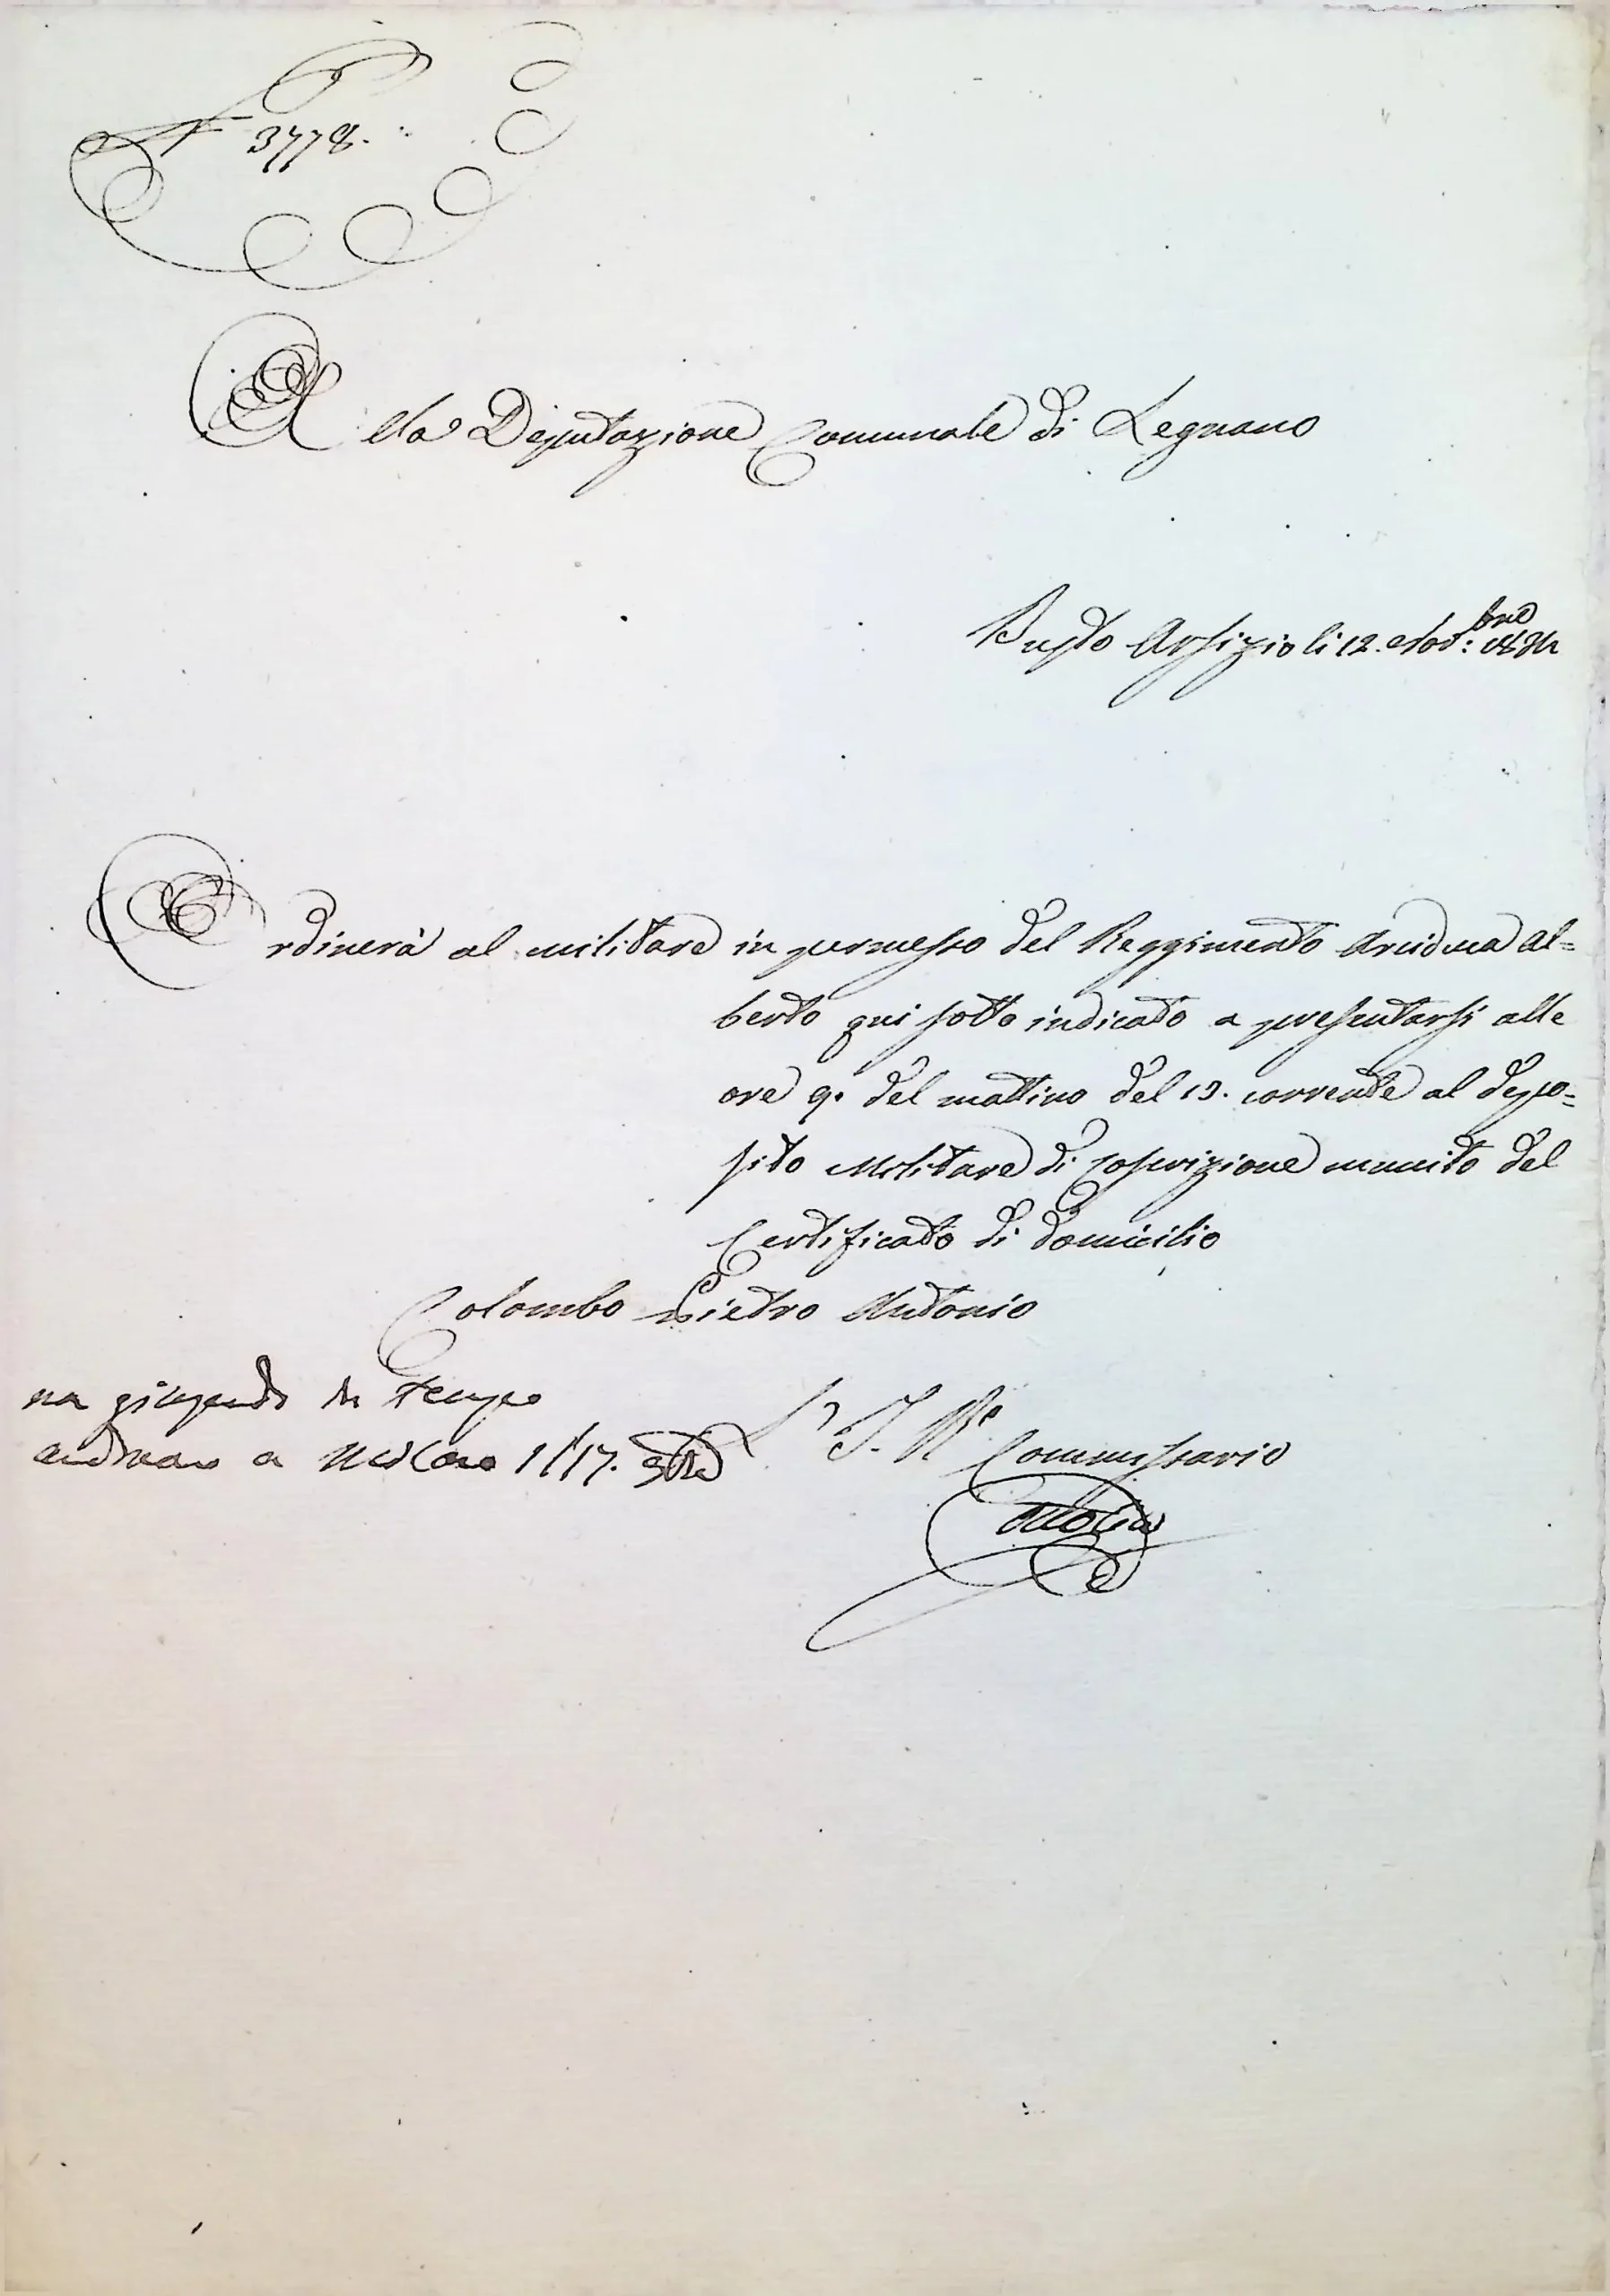 N 3778.
Alla Deputazione Comunale di Legnano
Busto Arsizio li 12. Nov:bre
Ordinerà al militare in permesso del Reggimento Arciduca Al=
berto qui sotto indicato a presentarsi alle
ore 9. del mattino del 19. corrente al depo=
sito Militare di Coscrizione munito del
Certificato di domicilio
Colombo Pietro Antonio
L'I. R. Commissario
tempo
a Milano 17.